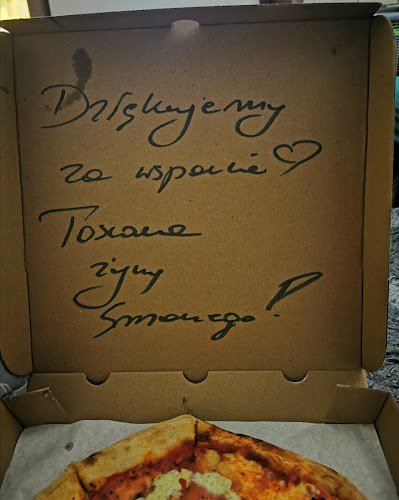 Dziękujemy
za wsparcie ♡
Toskana
życzy
Smacznego!